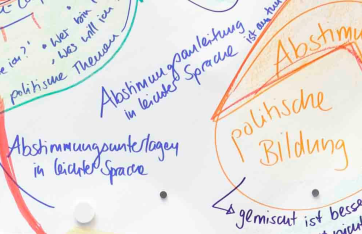 • Wer bin
• was will ich
politische Themen
Abstimmungsanleitung
in leichter Sprache
Abstimmungsunterlagen
in leichter Sprache
politische
Bildung
gemischt ist besse